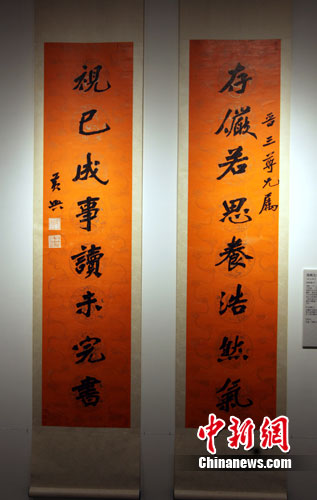 存儼若思養浩然氣
晋三尊兄屬
視已成事讀未完書
黃興
中新網
Chinanews.com